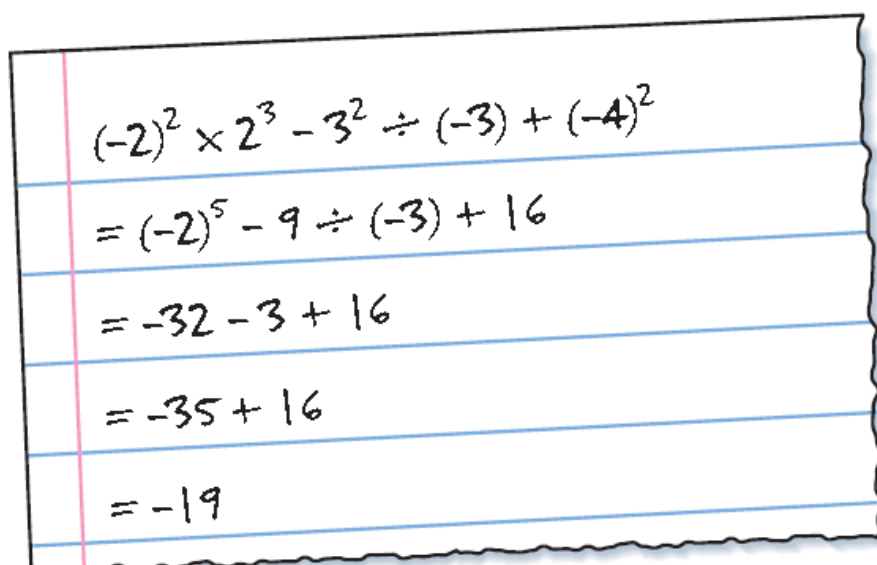 (-2)² × 2³ - 3² ÷ (-3) + (-4)²
= (-2)⁵ - 9 ÷ (-3) + 16
= -32 - 3 + 16
= -35 + 16
= -19